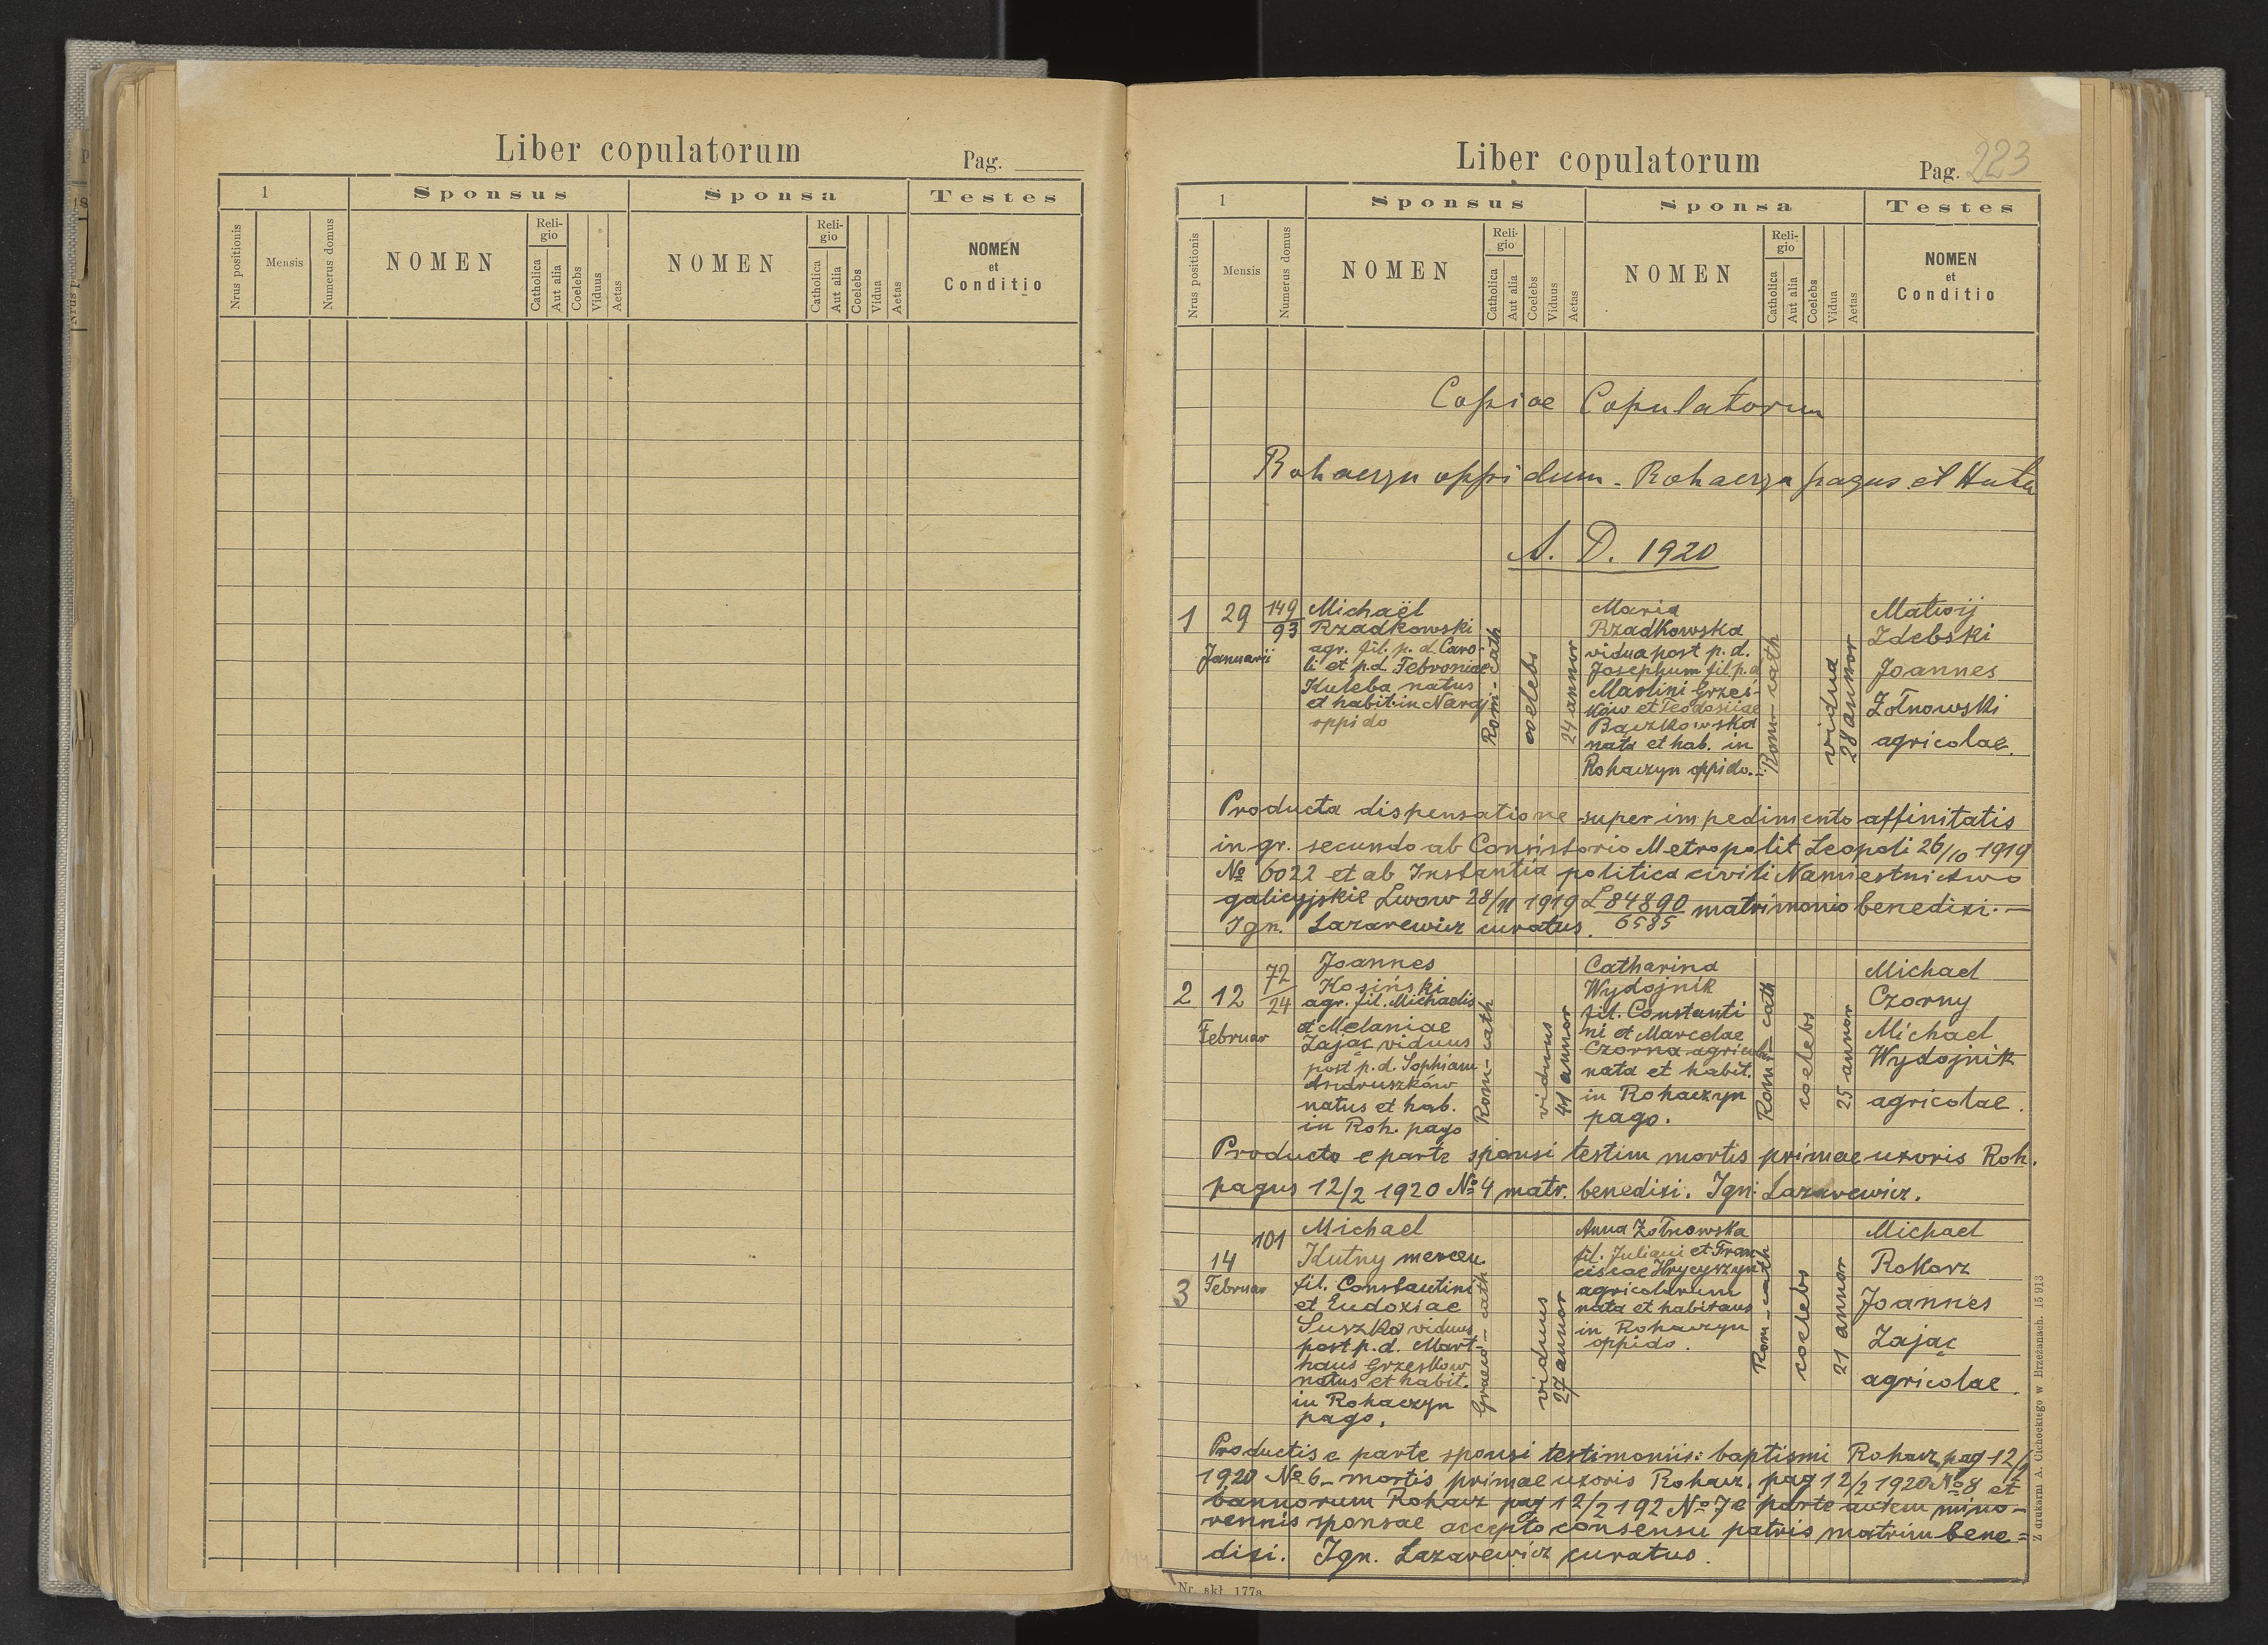 Liber copulatorum
Pag.
1
Sponsus
Sponsa
Testes
Nrus positionis
Mensis
Numerus domus
NOMEN
Religio
Catholica
Aut alia
Coelebs
Viduus
Aetas
NOMEN
Religio
Catholica
Aut alia
Coelebs
Vidua
Aetas
NOMEN
et
Conditio
Liber copulatorum
Pag. 223
1
Sponsus
Sponsa
Testes
Nrus positionis
Mensis
Numerus domus
NOMEN
Reli-
gio
Catholica
Aut alia
Coelebs
Viduus
Aetas
NOMEN
Reli-
gio
Catholica
Aut alia
Coelebs
Vidua
Aetas
NOMEN
et
Conditio
Copiae Copulatorum
Rohaczyn oppidum - Rohaczyn pagus et Huta
A. D. 1920
1
29
Januarii
149
93
Michaël
Rzadkowski
agr. fil. p. d. Caro-
li et p.d. Febroniae
Kuleba natus
et habit. in Naraj
oppido
Rom-cath
coelebs
24 annor
Maria
Rzadkowska
vidua post p. d.
Josephum fil. p. d.
Martini Grześ-
ków et Teodosiiae
Bączkowska
nata et hab. in
Rohaczyn oppido.
Rom-cath
vidua
28 annor
Matwij
Zdebski
Joannes
Żołnowski
agricolae.
Producta dispensatione super impedimento affinitatis
in gr. secundo ab Consistorio Metropolit Leopoli 26/10 1919
№ 6022 et ab Instantia politica civili Namiestnictwo
galicyjskie Lwow 28/11 1919 L 84890 matrimonio benedixi. —
6585
Ign. Lazarewicz curatus.
2
12
Februar
72
24
Joannes
Kosiński
agr. fil. Michaelis
et Melaniae
Zając viduus
post p. d. Sophiam
Andruszków
natus et hab.
in Roh. pago
Rom-cath
viduus
41 annor
Catharina
Wydojnik
fil. Constanti
ni et Marcelae
Czorna agricolar
nata et habit.
in Rohaczyn
pago.
Rom-cath
coelebs
25 annor
Michael
Czorny
Michael
Wydojnik
agricolae.
Producto e parte sponsi testim mortis primae uxoris Roh.
pagus 12/2 1920 № 4 matr. benedixi. Ign: Lazarewicz.
3
14
Februar
101
Michael
Kutny mercen.
fil. Constantini
et Eudoxiae
Suszka viduus
post p. d. Mart-
haus Grześkow
natus et habit.
in Rohaczyn
pago.
Graeco-cath
viduus
27 annor
Anna Żołnowska
fil. Juliani et Fran
ciscae Hrycyszyn
agricolarum
nata et habitans
in Rohaczyn
oppido.
Rom-cath
coelebs
21 annor
Michael
Rokosz
Joannes
Zając
agricolae.
Productis e parte sponsi testimoniis: baptismi Rohacz. pag 12/2
1920 № 6 - mortis primae uxoris Rohacz. pag 12/2 1920 № 8 et
bannorum Rohacz pag 12/2 192 № 7 e parte autem mino-
rennis sponsae accepto consensu patris matrim bene=
dixi. Ign. Lazarewicz curatus.
Nr. skł. 177a
Z drukarni A. Cichockiego w Brzeżanach. 15 913